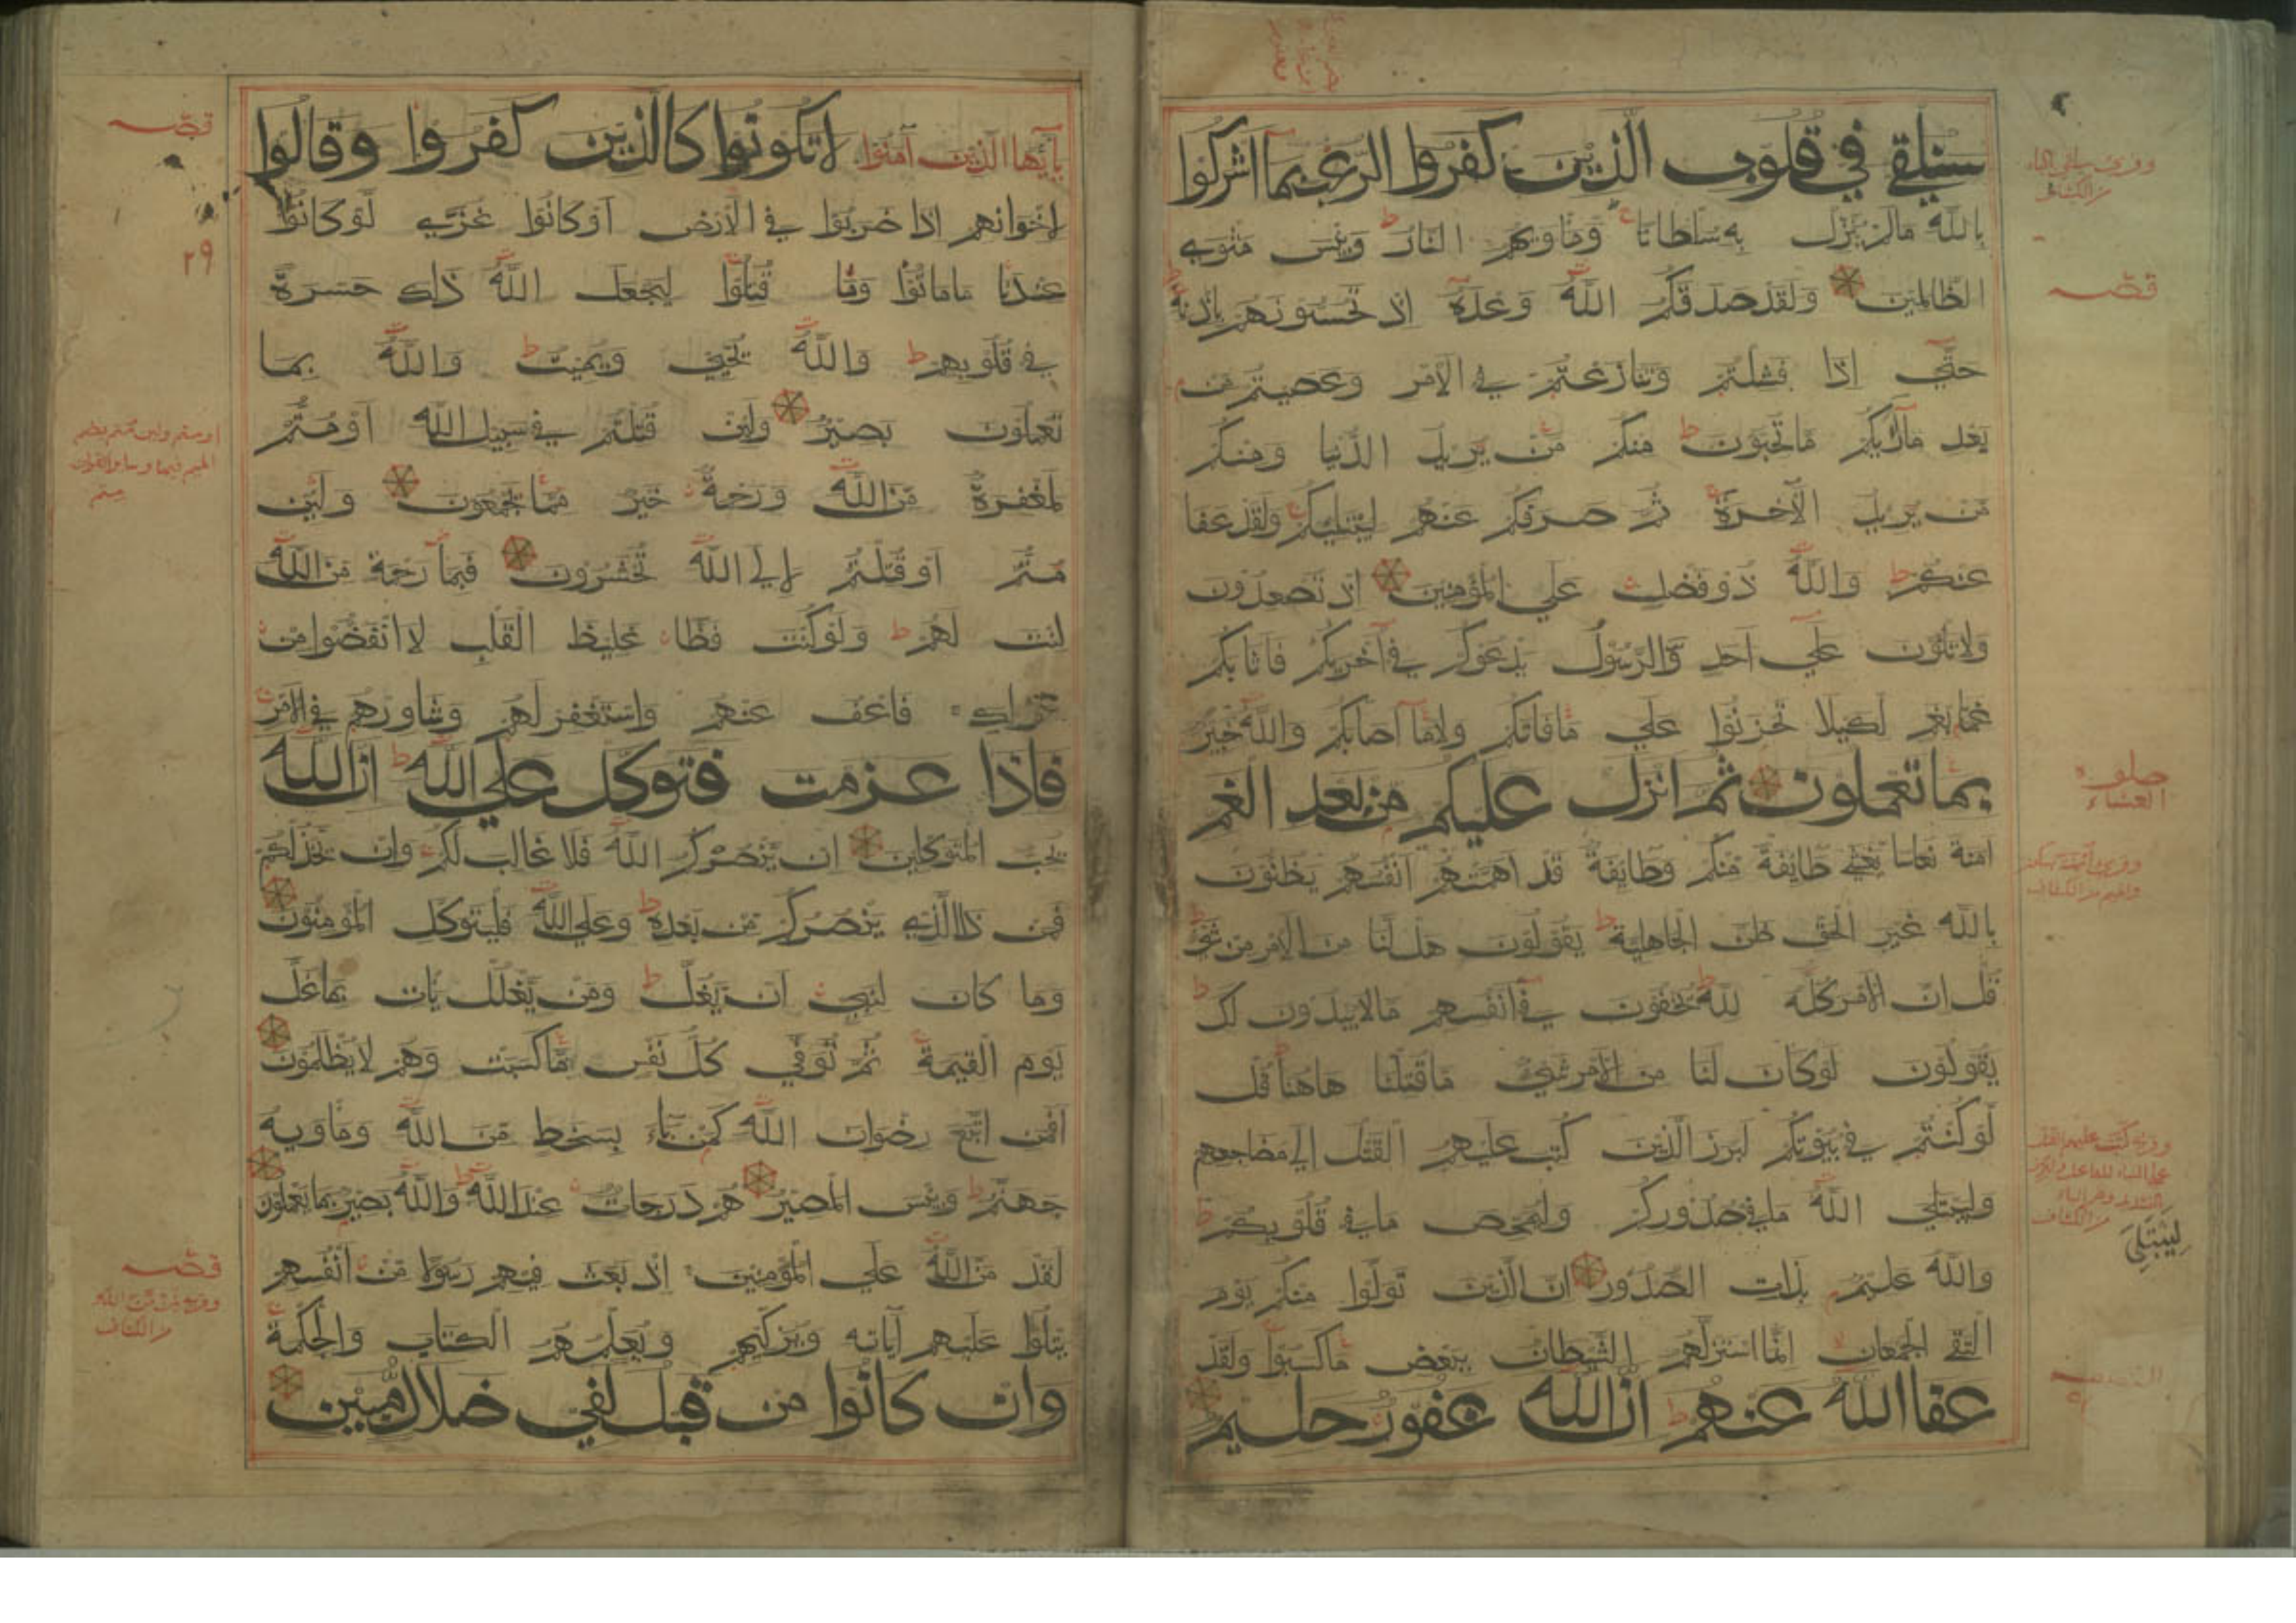 سنلقي في قلوب الذين كفروا الرعب بما اشركوا
بالله مالم ينزل به سلطانا وماويهم النار وبئس مثوى
الظالمين ولقد صدقكم الله وعده اذ تحسونهم باذنه
حتى اذا فشلتم وتنازعتم في الامر وعصيتم من
بعد ما اريكم ما تحبون منكم من يريد الدنيا ومنكم
من يريد الآخرة ثم صرفكم عنهم ليبتليكم ولقد عفا
عنكم والله ذو فضل على المؤمنين اذ تصعدون
ولا تلون على احد والرسول يدعوكم في اخريكم فاثابكم
غما بغم لكيلا تحزنوا على ما فاتكم ولا ما اصابكم والله خبير
بما تعملون ثم انزل عليكم من بعد الغم
امنة نعاسا يغشى طايفة منكم وطايفة قد اهمتهم انفسهم يظنون
بالله غير الحق ظن الجاهلية يقولون هل لنا من الامر من شئ
قل ان الامر كله لله يخفون في انفسهم مالا يبدون لك
يقولون لو كان لنا من الامر شئ ما قتلنا هاهنا قل
لو كنتم في بيوتكم لبرز الذين كتب عليهم القتل الى مضاجعهم
وليبتلي الله ما في صدوركم وليمحص ما في قلوبكم
والله عليم بذات الصدور ان الذين تولوا منكم يوم
التقى الجمعان انما استزلهم الشيطان ببعض ما كسبوا ولقد
عفا الله عنهم ان الله غفور حليم
قصه
صلوة
العشاء
ليبتلي
يا ايها الذين آمنوا لا تكونوا كالذين كفروا وقالوا
لاخوانهم اذا ضربوا في الارض او كانوا غزى لو كانوا
عندنا ما ماتوا وما قتلوا ليجعل الله ذلك حسرة
في قلوبهم والله يحيي ويميت والله بما
تعملون بصير ولئن قتلتم في سبيل الله او متم
لمغفرة من الله ورحمة خير مما يجمعون ولئن
متم او قتلتم لالى الله تحشرون فبما رحمة من الله
لنت لهم ولو كنت فظا غليظ القلب لا انفضوا من
حولك فاعف عنهم واستغفر لهم وشاورهم في الامر
فاذا عزمت فتوكل على الله ان الله
يحب المتوكلين ان ينصركم الله فلا غالب لكم وان يخذلكم
فمن ذا الذي ينصركم من بعده وعلى الله فليتوكل المؤمنون
وما كان لنبي ان يغل ومن يغلل يات بما غل
يوم القيمة ثم توفى كل نفس ما كسبت وهم لا يظلمون
افمن اتبع رضوان الله كمن باء بسخط من الله وماويه
جهنم وبئس المصير هم درجات عند الله والله بصير بما يعملون
لقد من الله على المؤمنين اذ بعث فيهم رسولا من انفسهم
يتلوا عليهم آياته ويزكيهم ويعلمهم الكتاب والحكمة
وان كانوا من قبل لفي ضلال مبين
قصه
٢٩
قصه